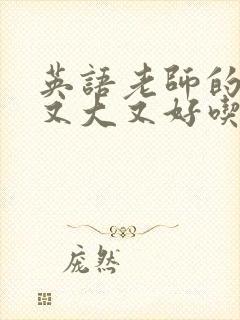 英語老師的
又大又好喫
庞然